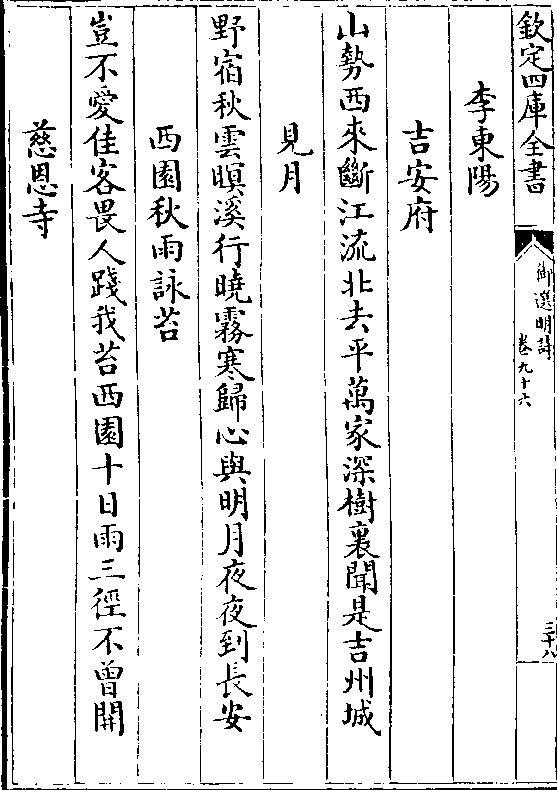 欽定四庫全書
御選明詩
卷九十六
三十八
李東陽
吉安府
山勢西來斷江流北去平萬家深樹裏聞是吉州城
見月
野宿秋雲暝溪行曉霧寒歸心與明月夜夜到長安
西園秋雨詠苔
豈不愛佳客畏人踐我苔西園十日雨三徑不曾開
慈恩寺